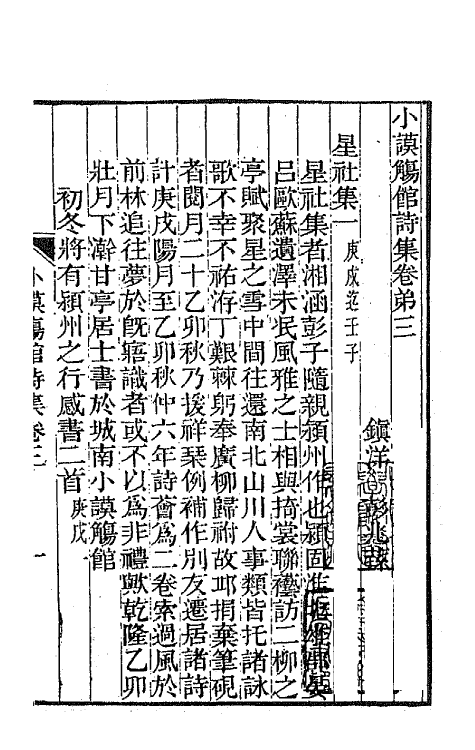 小謨觴館詩集卷弟三
鎮洋彭兆蓀
星社集一 庚戌迄壬子
星社集者湘涵彭子隨親潁州作也潁固淮
呂歐蘇遺澤未泯風雅之士相與掎裳聯襼訪二柳之
亭賦聚星之雪中間往還南北山川人事類皆托諸詠
歌不幸不祐洊丁艱棘躬奉廣柳歸祔故邱捐棄筆硯
者閱月二十乙卯秋乃援祥琹例補作別友遷居諸詩
計庚戌陽月至乙卯秋仲六年詩薈爲二卷索過風於
前林追往夢於旣寤識者或不以爲非禮歟乾隆乙卯
壯月下澣甘亭居士書於城南小謨觴館
初冬將有潁州之行感書二首 庚戌
小謨觴館詩集卷三 一